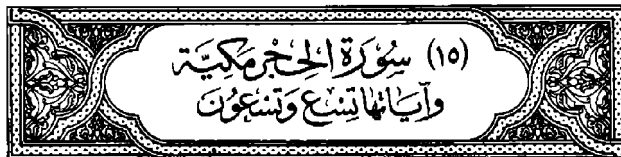 (١٥) سُورَةُ الحِجْرِ مَكِيَّة
وَآيَاتُهَا تِسْعٌ وَتِسْعُونَ